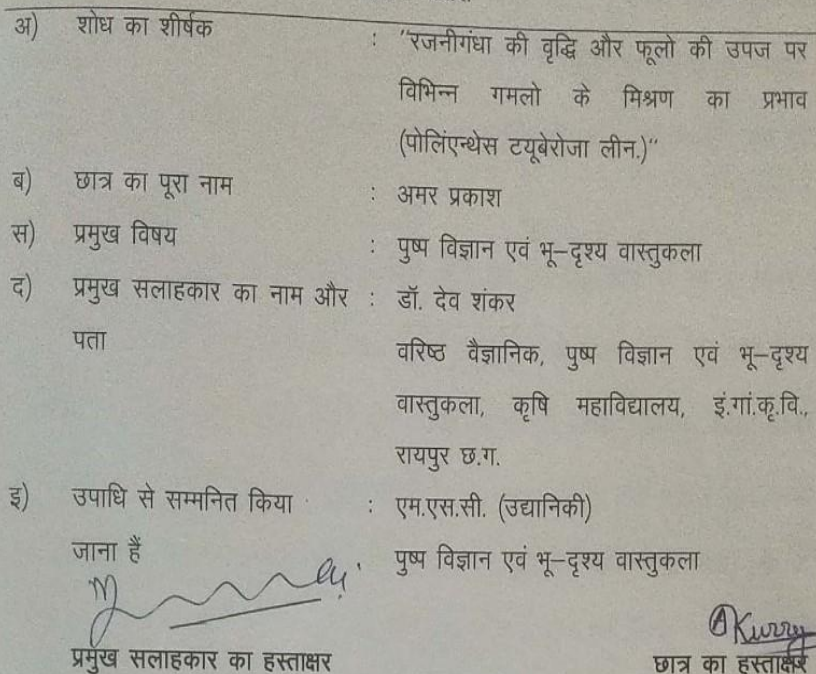 अ) शोध का शीर्षक : "रजनीगंधा की वृद्धि और फूलो की उपज पर
विभिन्न गमलो के मिश्रण का प्रभाव
(पोलिंएन्थेस टयूबेरोजा लीन.)"
ब) छात्र का पूरा नाम : अमर प्रकाश
स) प्रमुख विषय : पुष्प विज्ञान एवं भू-दृश्य वास्तुकला
द) प्रमुख सलाहकार का नाम और : डॉ. देव शंकर
पता वरिष्ठ वैज्ञानिक, पुष्प विज्ञान एवं भू-दृश्य
वास्तुकला, कृषि महाविद्यालय, इं.गां.कृ.वि.,
रायपुर छ.ग.
इ) उपाधि से सम्मनित किया : एम.एस.सी. (उद्यानिकी)
जाना हैं पुष्प विज्ञान एवं भू-दृश्य वास्तुकला
प्रमुख सलाहकार का हस्ताक्षर छात्र का हस्ताक्षर